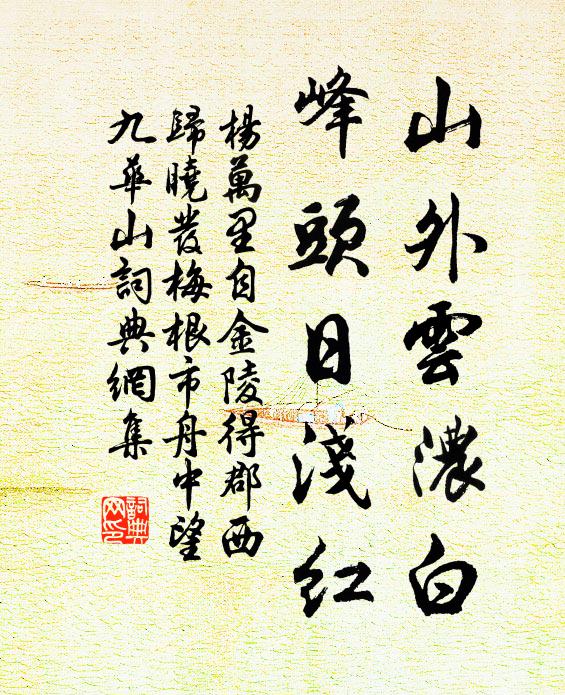 山外雲濃白
峰頭日淺紅
楊萬里自金陵得郡西
歸曉發梅根市舟中望
九華山詞典網集
詞典
网印